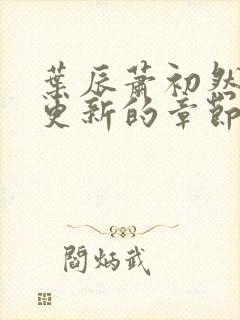 葉辰蕭初然
更新的章節
閻炳武